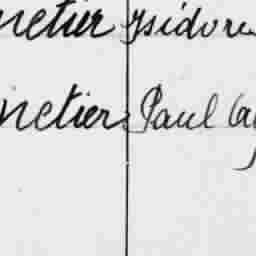 netier Isidore
netier Paul